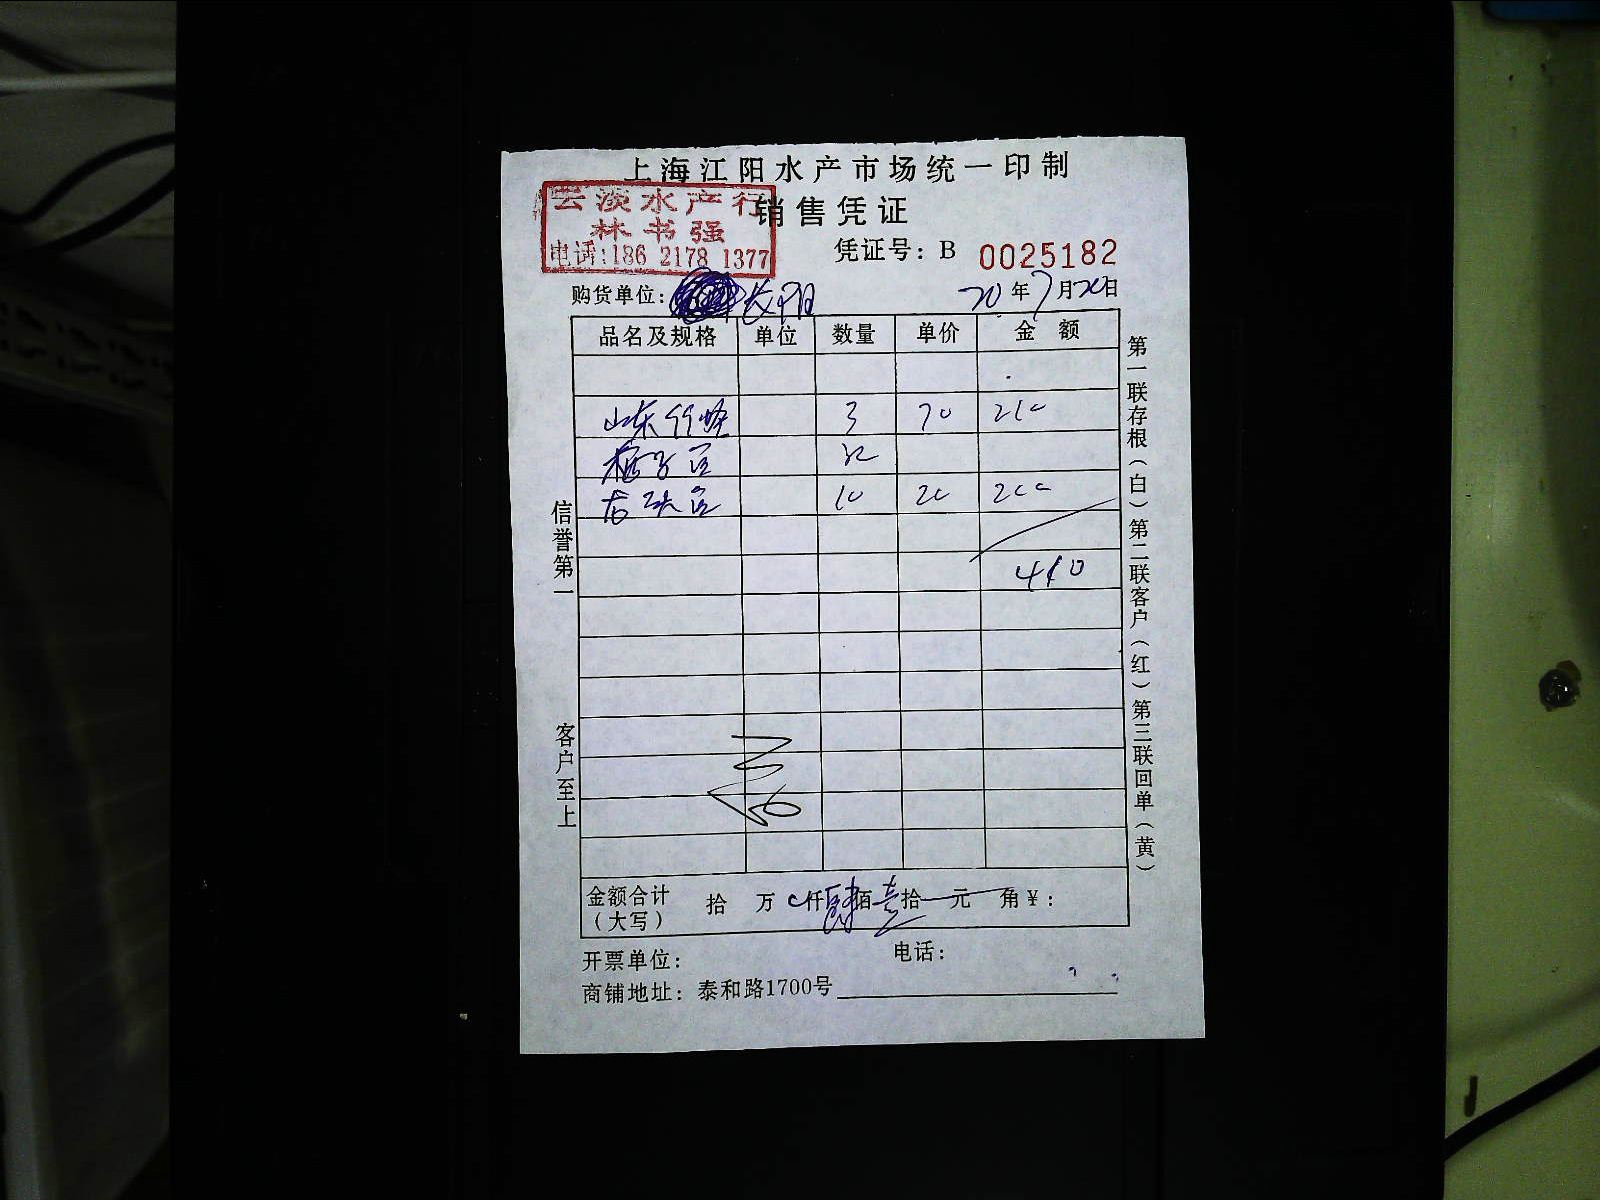 上海江阳水产市场统一印制
云淡水产行
销售凭证
林书强
电话:186 2178 1377
凭证号: B 0025182
购货单位: 长阳
20年7月20日
品名及规格 单位 数量 单价 金额
山东 3 70 210
10 20 200
410
信誉第一
客户至上
第一联存根(白)第二联客户(红)第三联回单(黄)
金额合计(大写) 拾 万 仟肆佰壹拾 元 角¥:
开票单位: 电话:
商铺地址: 泰和路1700号